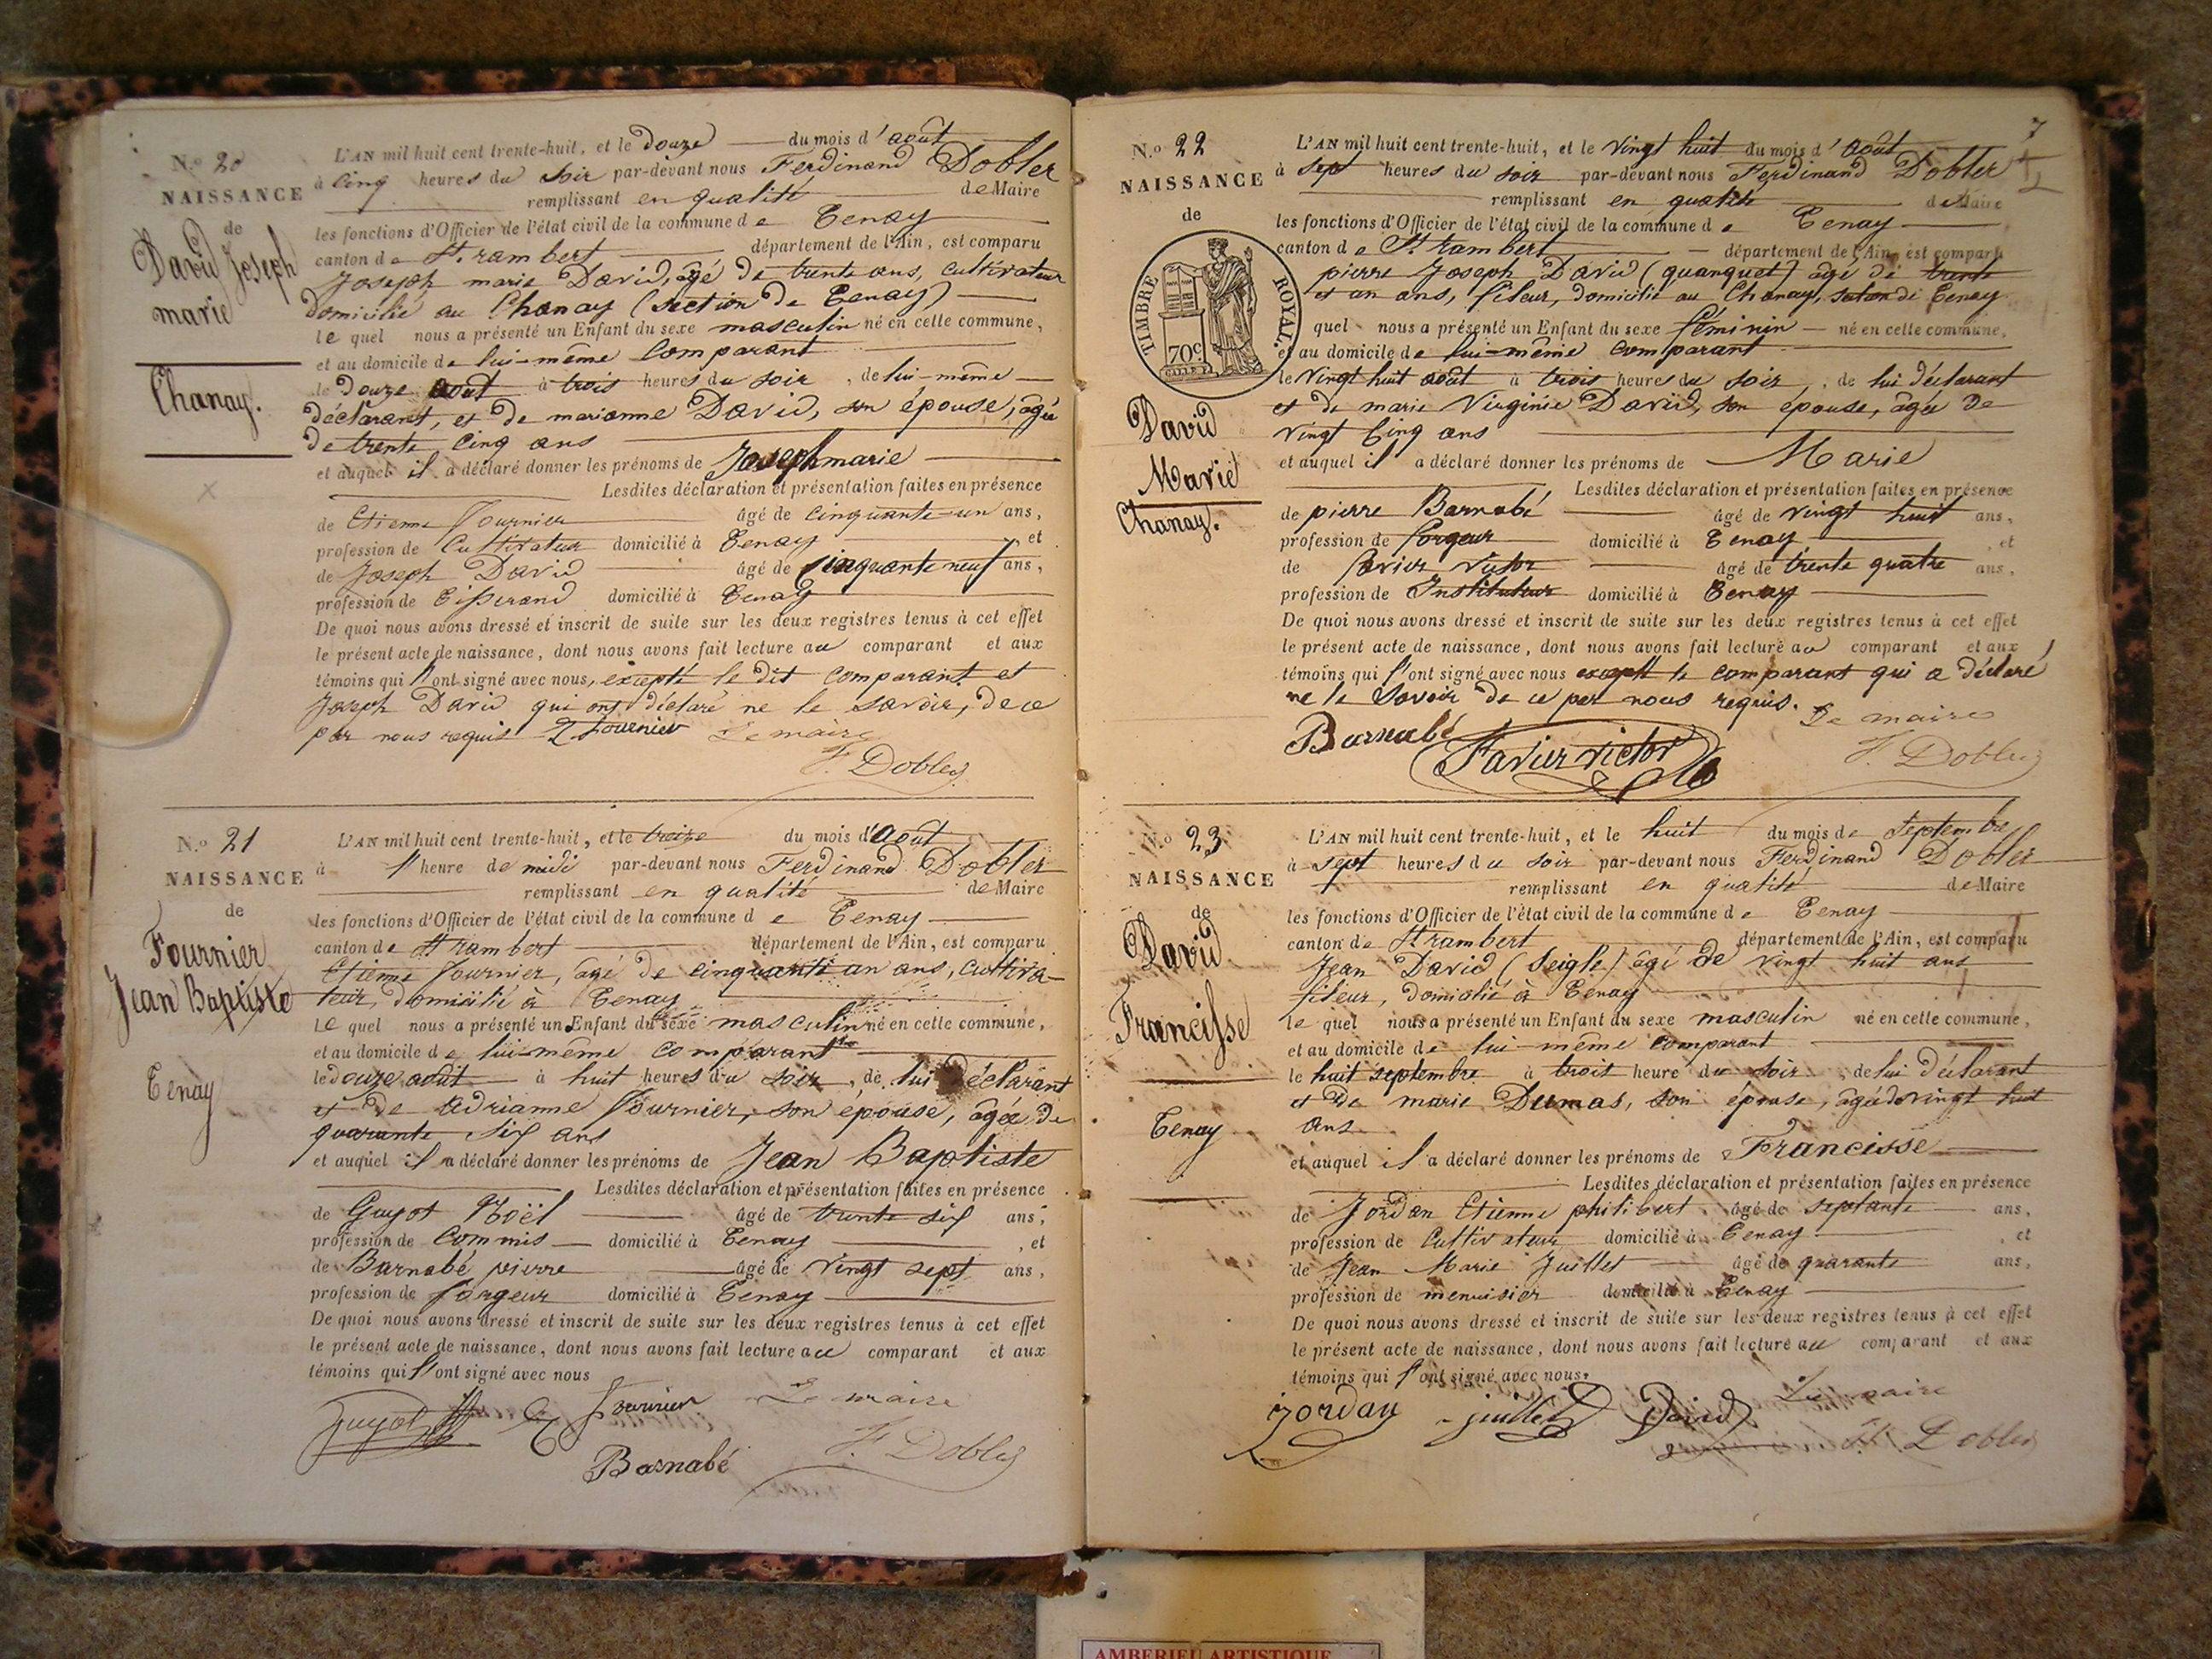 N.o 20
NAISSANCE
de
David Joseph
marie
Chanay.
L'AN mil huit cent trente-huit, et le douze du mois d'août
à cinq heures du soir par-devant nous Ferdinand Dobler
remplissant en qualité de Maire
les fonctions d'Officier de l'état civil de la commune de Tenay
canton de St. rambert département de l'Ain, est comparu
Joseph marie David, âgé de trente ans, cultivateur
domicilié au Chanay (section de Tenay)
le quel nous a présenté un Enfant du sexe masculin né en cette commune,
et au domicile de lui-même comparant
le douze août à trois heures du soir, de lui-même
déclarant, et de marianne David, son épouse, âgée
de trente cinq ans
et auquel il a déclaré donner les prénoms de Joseph marie
Lesdites déclaration et présentation faites en présence
de Etienne fournier âgé de cinquante-un ans,
profession de Cultivateur domicilié à Tenay, et
de Joseph David âgé de cinquante neuf ans,
profession de Tisserand domicilié à Tenay
De quoi nous avons dressé et inscrit de suite sur les deux registres tenus à cet effet
le présent acte de naissance, dont nous avons fait lecture au comparant et aux
témoins qui l'ont signé avec nous, excepté le dit comparant et
Joseph David qui ont déclaré ne le savoir, de ce
par nous requis fournier Le maire
F. Dobler
N.o 21
NAISSANCE
de
Fournier
Jean Baptiste
Tenay
L'AN mil huit cent trente-huit, et le treize du mois d'août
à l'heure de midi par-devant nous Ferdinand Dobler
remplissant en qualité de Maire
les fonctions d'Officier de l'état civil de la commune de Tenay
canton de St rambert département de l'Ain, est comparu
Etienne fournier, âgé de cinquante un ans, cultiva-
teur, domicilié à Tenay
le quel nous a présenté un Enfant du sexe masculin né en cette commune,
et au domicile de lui-même comparant
le douze août à huit heures du soir, de lui déclarant
et de adrianne fournier, son épouse, âgée de
quarante six ans
et auquel il a déclaré donner les prénoms de Jean Baptiste
Lesdites déclaration et présentation faites en présence
de Guyot Noël âgé de trente six ans,
profession de Commis domicilié à Tenay, et
de Barnabé pierre âgé de vingt sept ans,
profession de forgeur domicilié à Tenay
De quoi nous avons dressé et inscrit de suite sur les deux registres tenus à cet effet
le présent acte de naissance, dont nous avons fait lecture au comparant et aux
témoins qui l'ont signé avec nous
Guyot fournier Le maire
Barnabé F. Dobler
7
N.o 22
NAISSANCE
de
TIMBRE ROYAL.
70c
David
Marie
Chanay.
L'AN mil huit cent trente-huit, et le vingt huit du mois d'août
à sept heures du soir par-devant nous Ferdinand Dobler
remplissant en qualité de Maire
les fonctions d'Officier de l'état civil de la commune de Tenay
canton de St rambert département de l'Ain, est comparu
pierre Joseph David (quanquet) âgé de trente
et un ans, fileur, domicilié au Chanay, section de Tenay
quel nous a présenté un Enfant du sexe féminin né en cette commune,
et au domicile de lui-même comparant
le vingt huit août à trois heures du soir, de lui déclarant
et de marie Virginie David, son épouse, âgée de
vingt cinq ans
et auquel il a déclaré donner les prénoms de Marie
Lesdites déclaration et présentation faites en présence
de pierre Barnabé âgé de vingt huit ans,
profession de forgeur domicilié à Tenay, et
de favier victor âgé de trente quatre ans,
profession de Instituteur domicilié à Tenay
De quoi nous avons dressé et inscrit de suite sur les deux registres tenus à cet effet
le présent acte de naissance, dont nous avons fait lecture au comparant et aux
témoins qui l'ont signé avec nous excepté le comparant qui a déclaré
ne le savoir de ce par nous requis. Le maire
Barnabé Favier victor F. Dobler
N.o 23
NAISSANCE
de
David
Francisse
Tenay
L'AN mil huit cent trente-huit, et le huit du mois de septembre
à sept heures du soir par-devant nous Ferdinand Dobler
remplissant en qualité de Maire
les fonctions d'Officier de l'état civil de la commune de Tenay
canton de St rambert département de l'Ain, est comparu
Jean David (Seigle) âgé de vingt huit ans
fileur, domicilié à Tenay
le quel nous a présenté un Enfant du sexe masculin né en cette commune,
et au domicile de lui-même comparant
le huit septembre à trois heure du soir, de lui déclarant
et de marie Dumas, son épouse, âgée de vingt huit
ans
et auquel il a déclaré donner les prénoms de Francisse
Lesdites déclaration et présentation faites en présence
de Jordan Etienne philibert âgé de septante ans,
profession de Cultivateur domicilié à Tenay, et
de Jean Marie Juillet âgé de quarante ans,
profession de menuisier domicilié à Tenay
De quoi nous avons dressé et inscrit de suite sur les deux registres tenus à cet effet
le présent acte de naissance, dont nous avons fait lecture au comparant et aux
témoins qui l'ont signé avec nous.
jordan juillet David Le maire
F. Dobler
AMBERIEU ARTISTIQUE